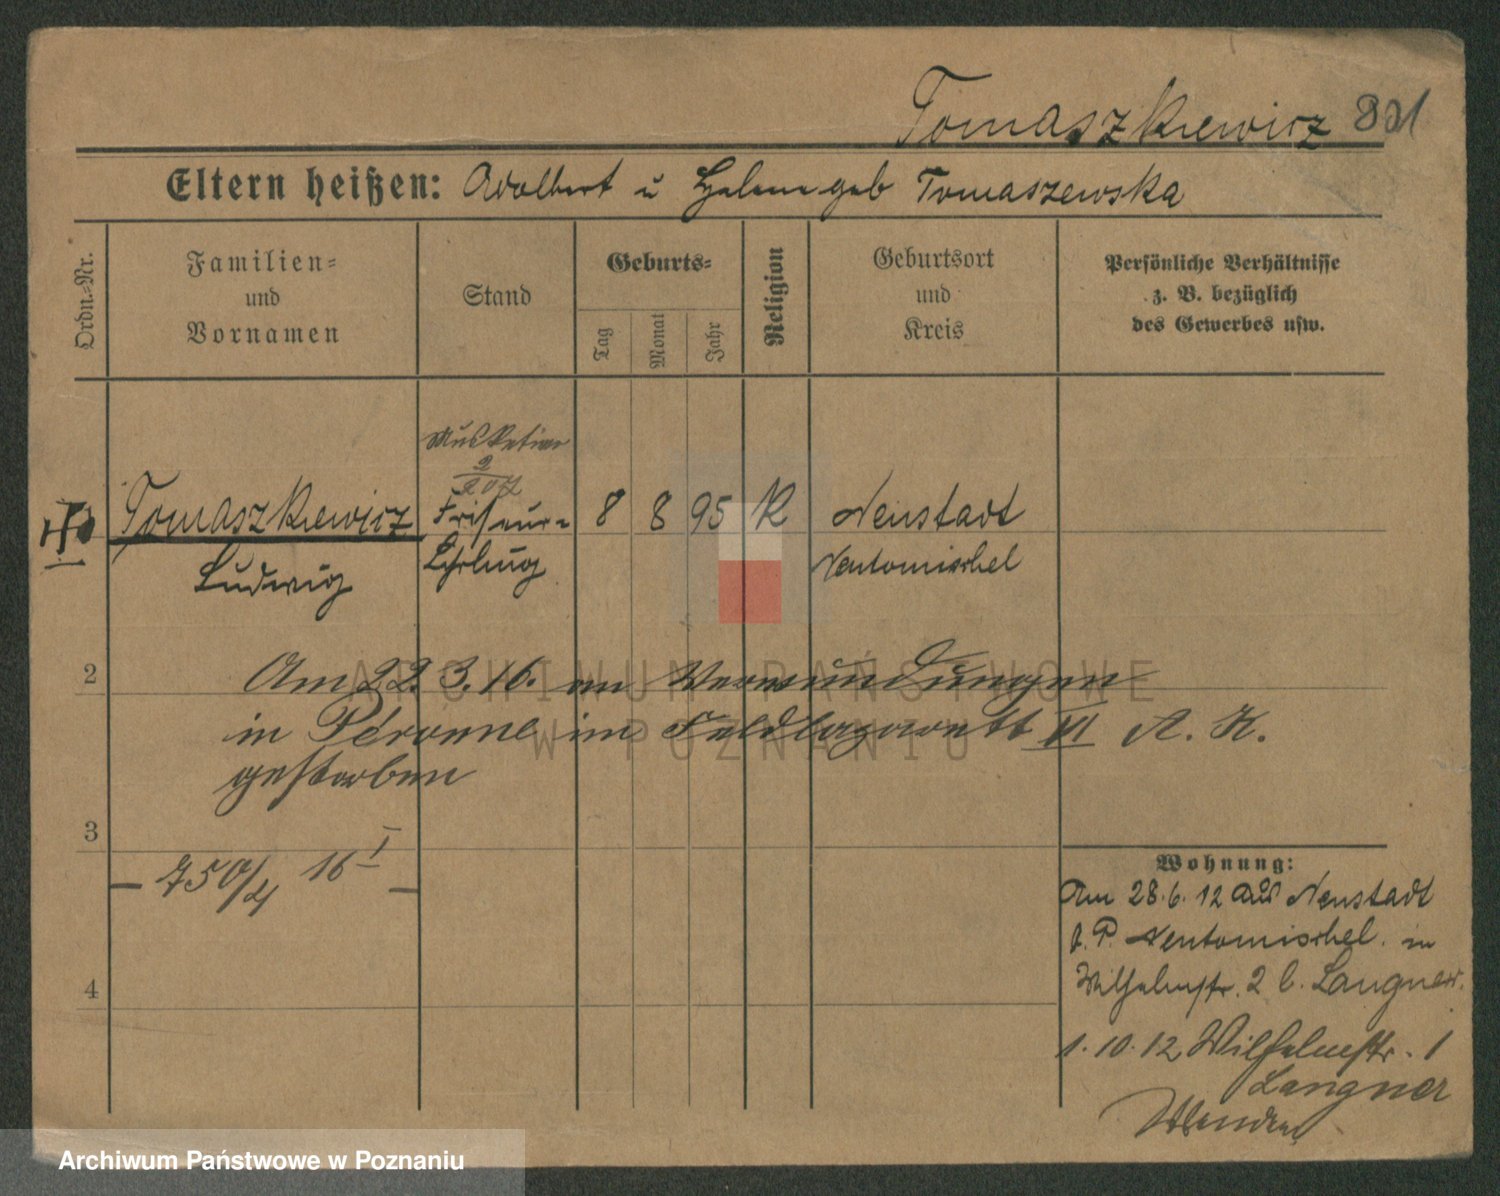 Tomaszkiewicz 831
Eltern heißen: Adalbert u Helene geb Tomaszewska
Ordn.-Nr.
Familien-
und
Vornamen
Stand
Geburts-
Tag
Monat
Jahr
Religion
Geburtsort
und
Kreis
Persönliche Verhältnisse
z. B. bezüglich
des Gewerbes usw.
Musketier
Tomaszkiewicz
Ludwig
Friseur-
Lehrling
8 8 95 K
Neustadt
Neutomischel
2
Am 22. 3. 16. an Verwundungen
in Péronne im Feldlazarett VI A. K.
gestorben
3
750/4 16 I
4
ARCHIWUM PAŃSTWOWE
W POZNANIU
Wohnung:
Am 28.6.12 aus Neustadt
b. P. Neutomischel. in
Wilhelmstr. 2 b. Langner.
1.10.12 Wilhelmstr. 1
Langner
Archiwum Państwowe w Poznaniu